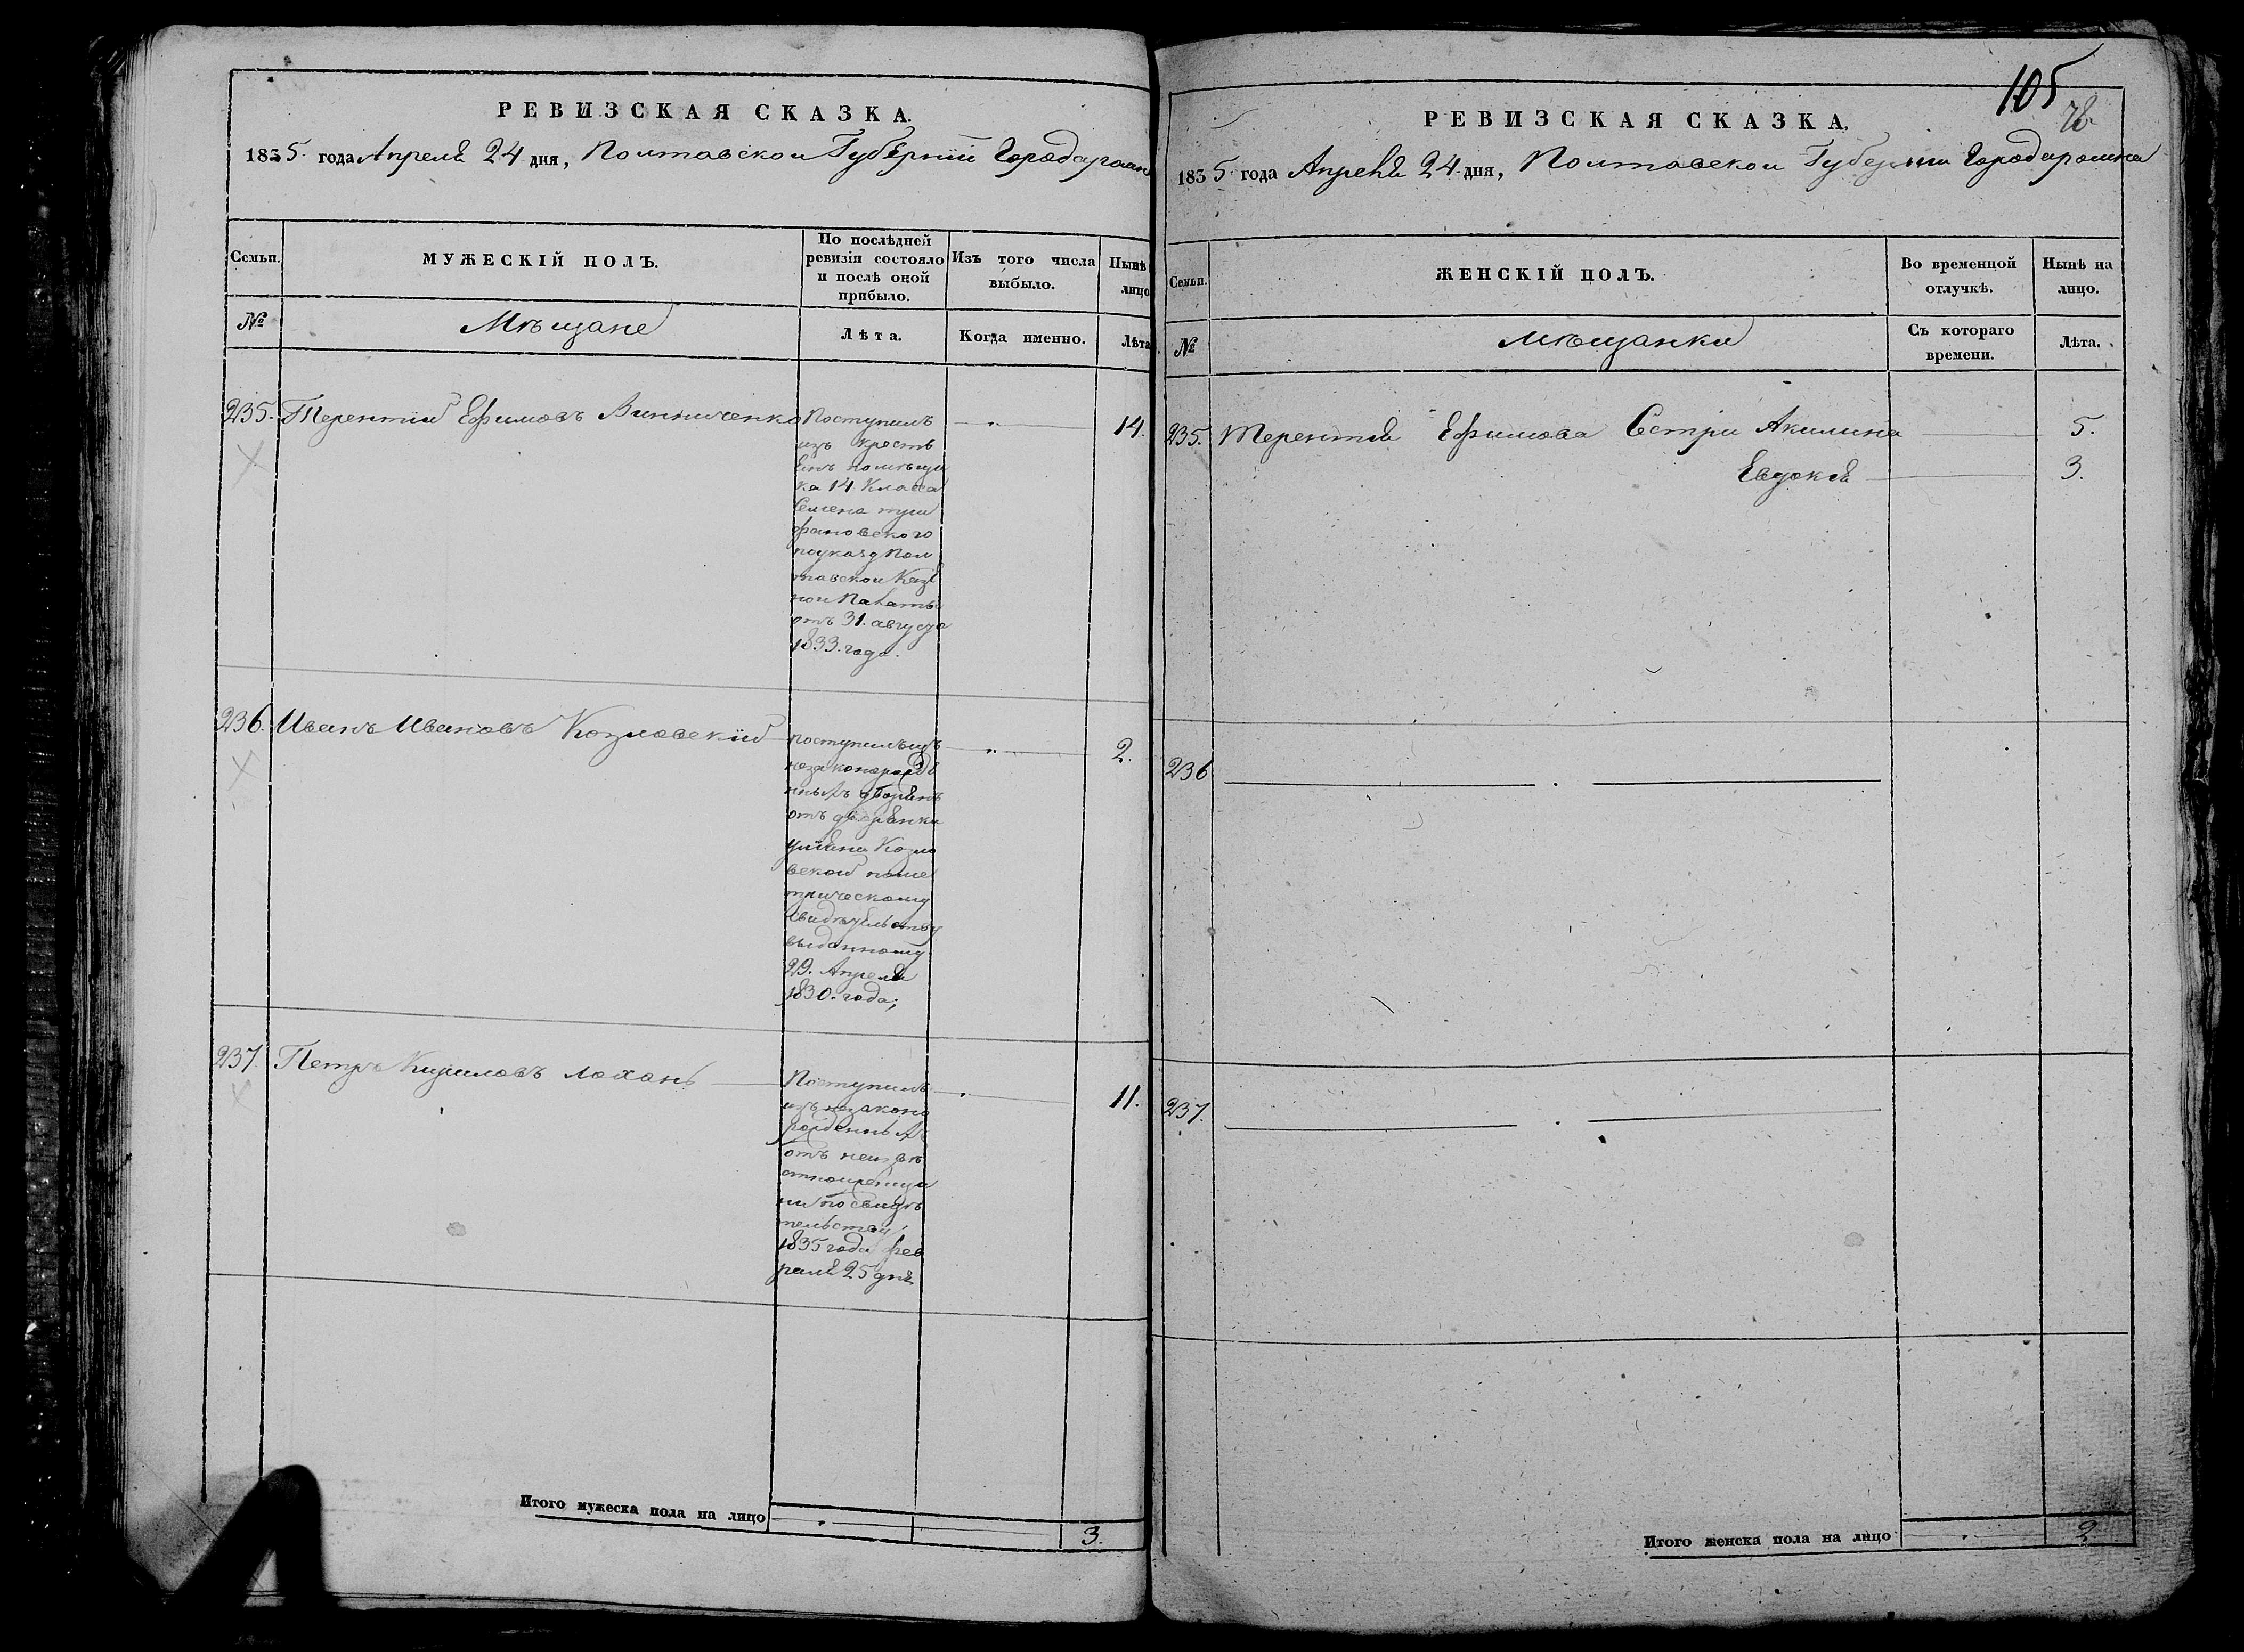 РЕВИЗСКАЯ СКАЗКА.
1835. года Апреля 24 дня, Полтавской Губернии Города
Семьи.
МУЖЕСКІЙ ПОЛЪ.
По послѣдней ревизіи состояло и послѣ оной прибыло.
Изъ того числа выбыло.
Нынѣ лицо
№
Мѣщане
Лѣта.
Когда именно.
Лѣта
235. Терентий Ефимовъ Винниченко
Поступилъ
изъ кресть
янъ помѣщи
ка 14. Класса
Семена
фановского
по указу Пол
тавской Казе
ной Палаты
отъ 31. августа
1833. года.
14.
236. Иванъ Ивановъ Козловский
поступилъ изъ
незаконорожде
нныхъ дворянъ
отъ дворянки
Улияны Козло
вской по ме
трическому
свидѣтельству
выданному
29. Апреля
1830. года;
2.
237. Петръ Кириловъ Лохань
Поступилъ
изъ незаконо
рожденныхъ
отъ неизвѣ
стной
по свидѣ
тельству
1835 года фев
раля 25 дня
11.
Итого мужеска пола на лицо
3.
105
РЕВИЗСКАЯ СКАЗКА.
1835. года Апреля 24. дня, Полтавской Губернии Города
Семьи.
ЖЕНСКІЙ ПОЛЪ.
Во временной отлучкѣ.
Нынѣ на лицо.
№
Мѣщанки
Съ котораго времени.
Лѣта.
235. Терентия Ефимова Сестры Акилина 5.
Евдокия 3.
236
237.
Итого женска пола на лицо
2